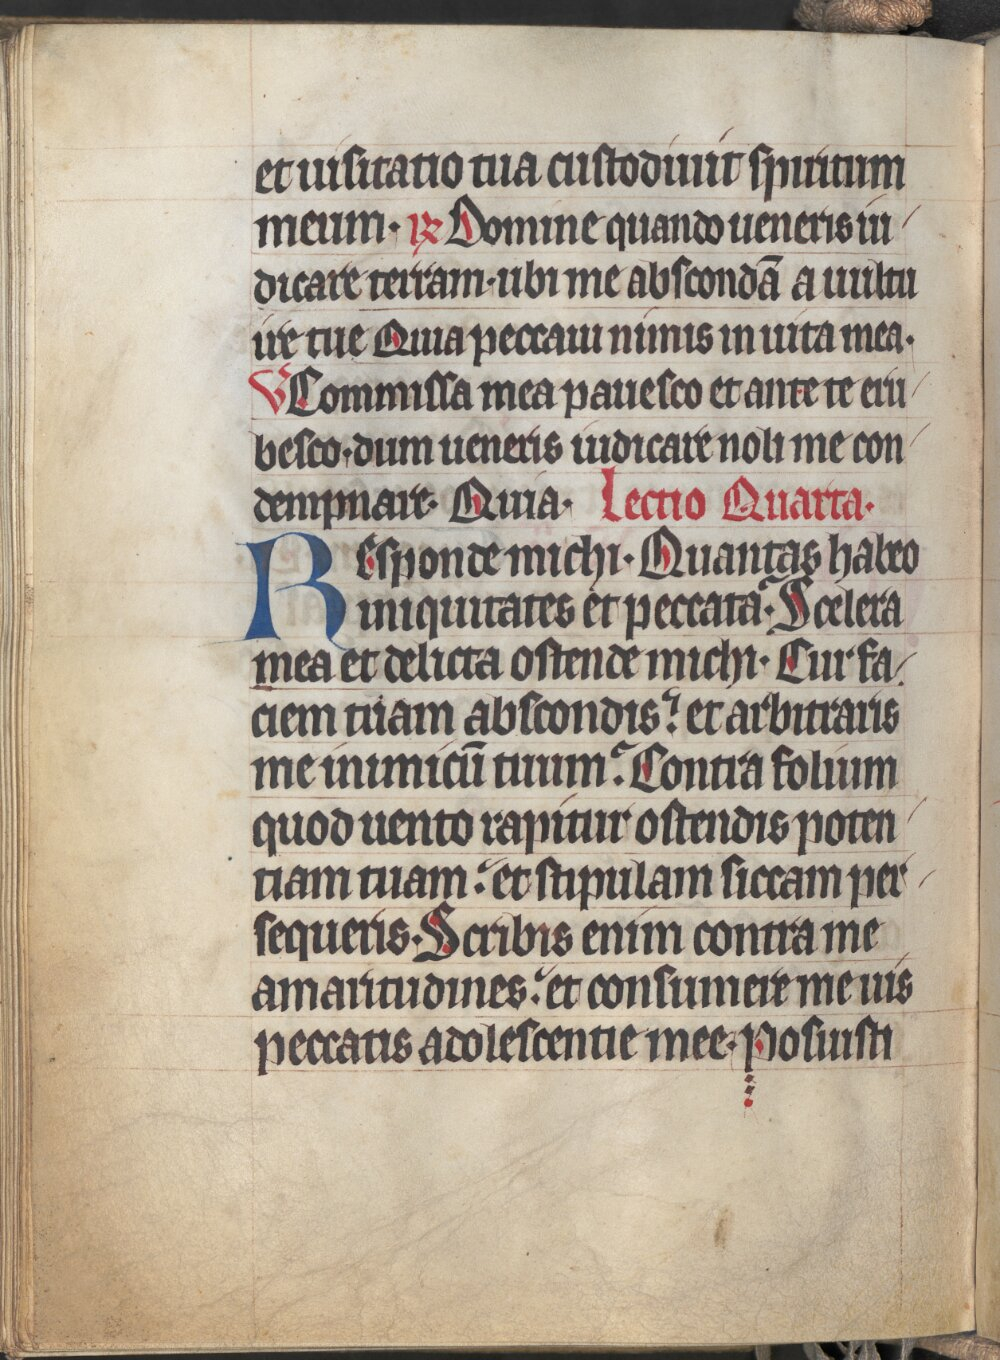 et uisitatio tua custodiuit spiritum
meum · ℟ Domine quando ueneris iu
dicare terram · ubi me abscondā a uultu
ire tue Quia peccaui nimis in uita mea ·
℣ Commissa mea pauesco et ante te eru
besco · dum ueneris iudicare noli me con
dempnare · Quia · Lectio Quarta ·
Responde michi · Quantas habeo
iniquitates et peccata · Scelera
mea et delicta ostende michi · Cur fa
ciem tuam abscondis? et arbitraris
me inimicū tuum? Contra folium
quod uento rapitur ostendis poten
tiam tuam : et stipulam siccam per
sequeris · Scribis enim contra me
amaritudines : et consumere me uis
peccatis adolescentie mee · Posuisti